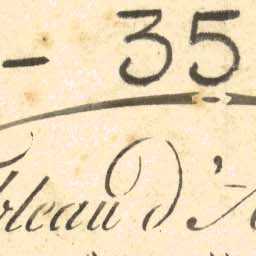 - 35
bleau d'A